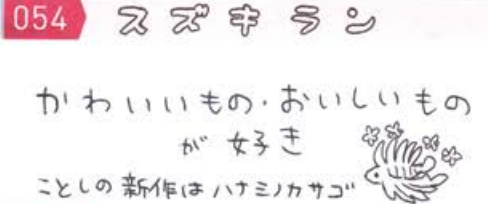 054 スズキラン
かわいいもの・おいしいもの
が 好き
ことしの新作はハナミノカサゴ